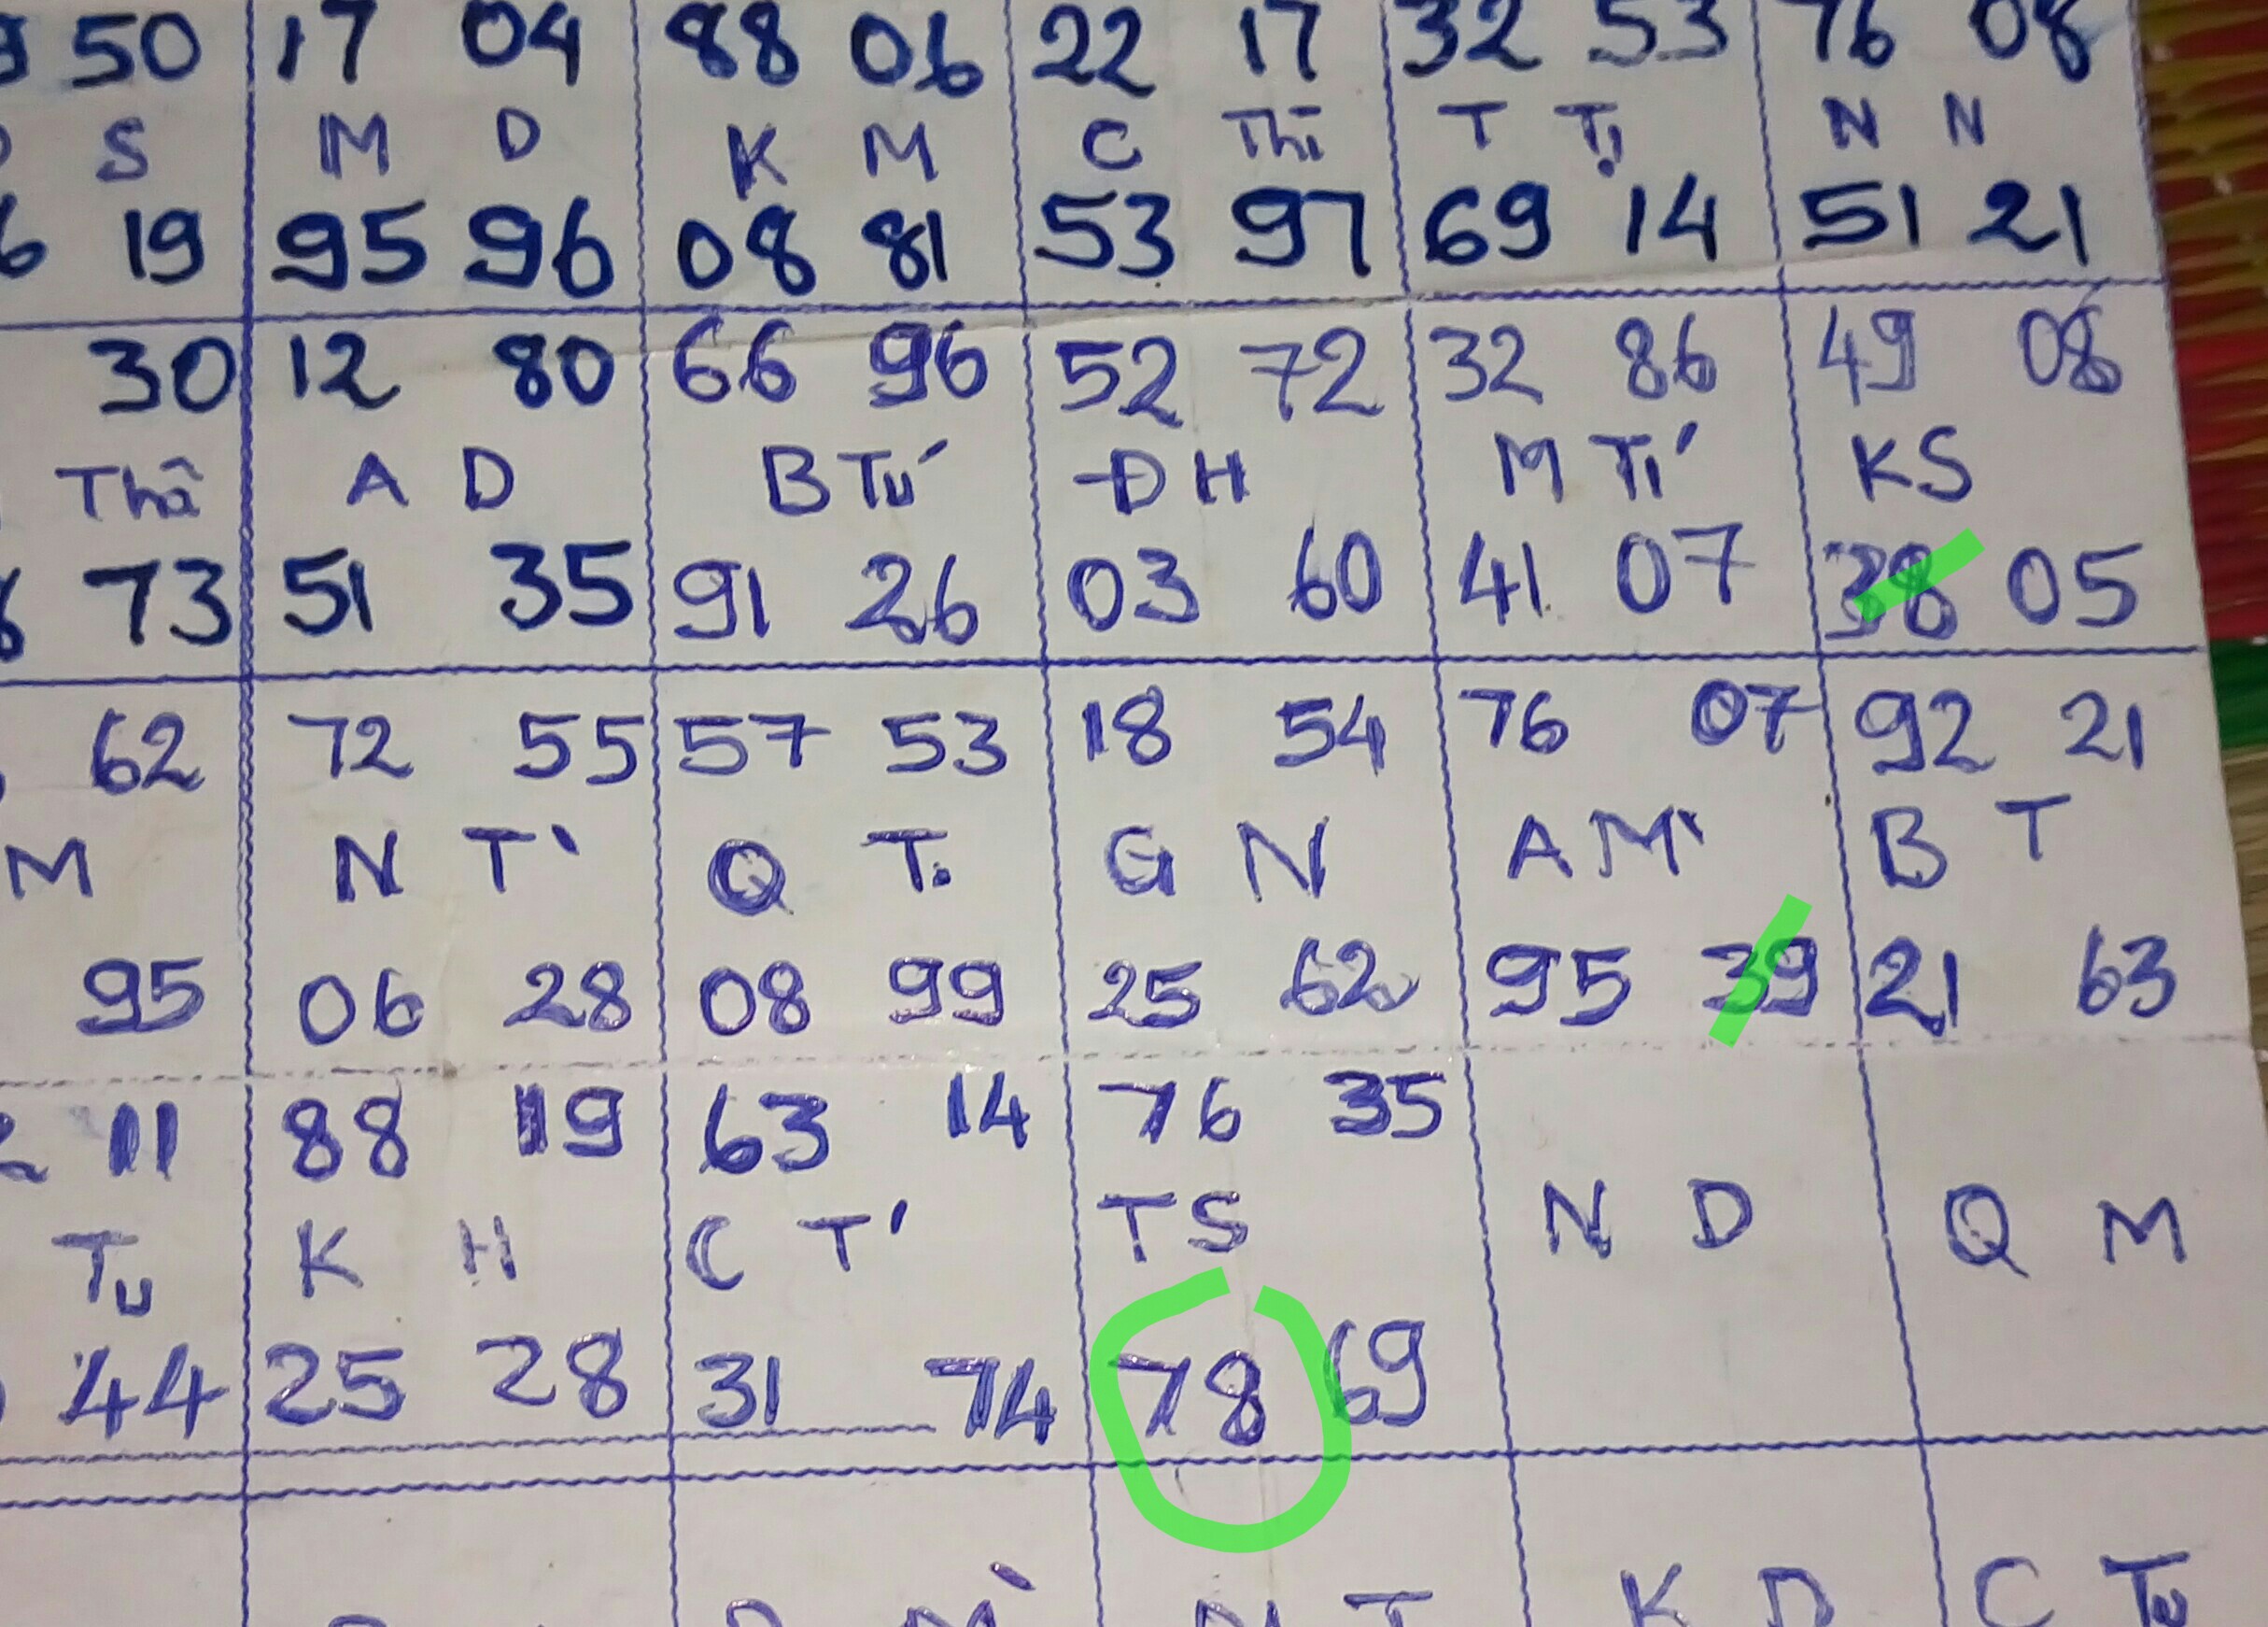 50 17 04 88 06 22 17 32 53 76 08
S M D K M C Thì T Tị N N
19 95 96 08 81 53 97 69 14 51 21
30 12 80 66 96 52 72 32 86 49 08
Thâ A D B Tú Đ H M Tí K S
73 51 35 91 26 03 60 41 07 38 05
62 72 55 57 53 18 54 76 07 92 21
M N T` Q T. G N A M` B T
95 06 28 08 99 25 62 95 39 21 63
11 88 19 63 14 76 35
Tu K H C T' T S N D Q M
44 25 28 31 74 78 69
K D C Tu